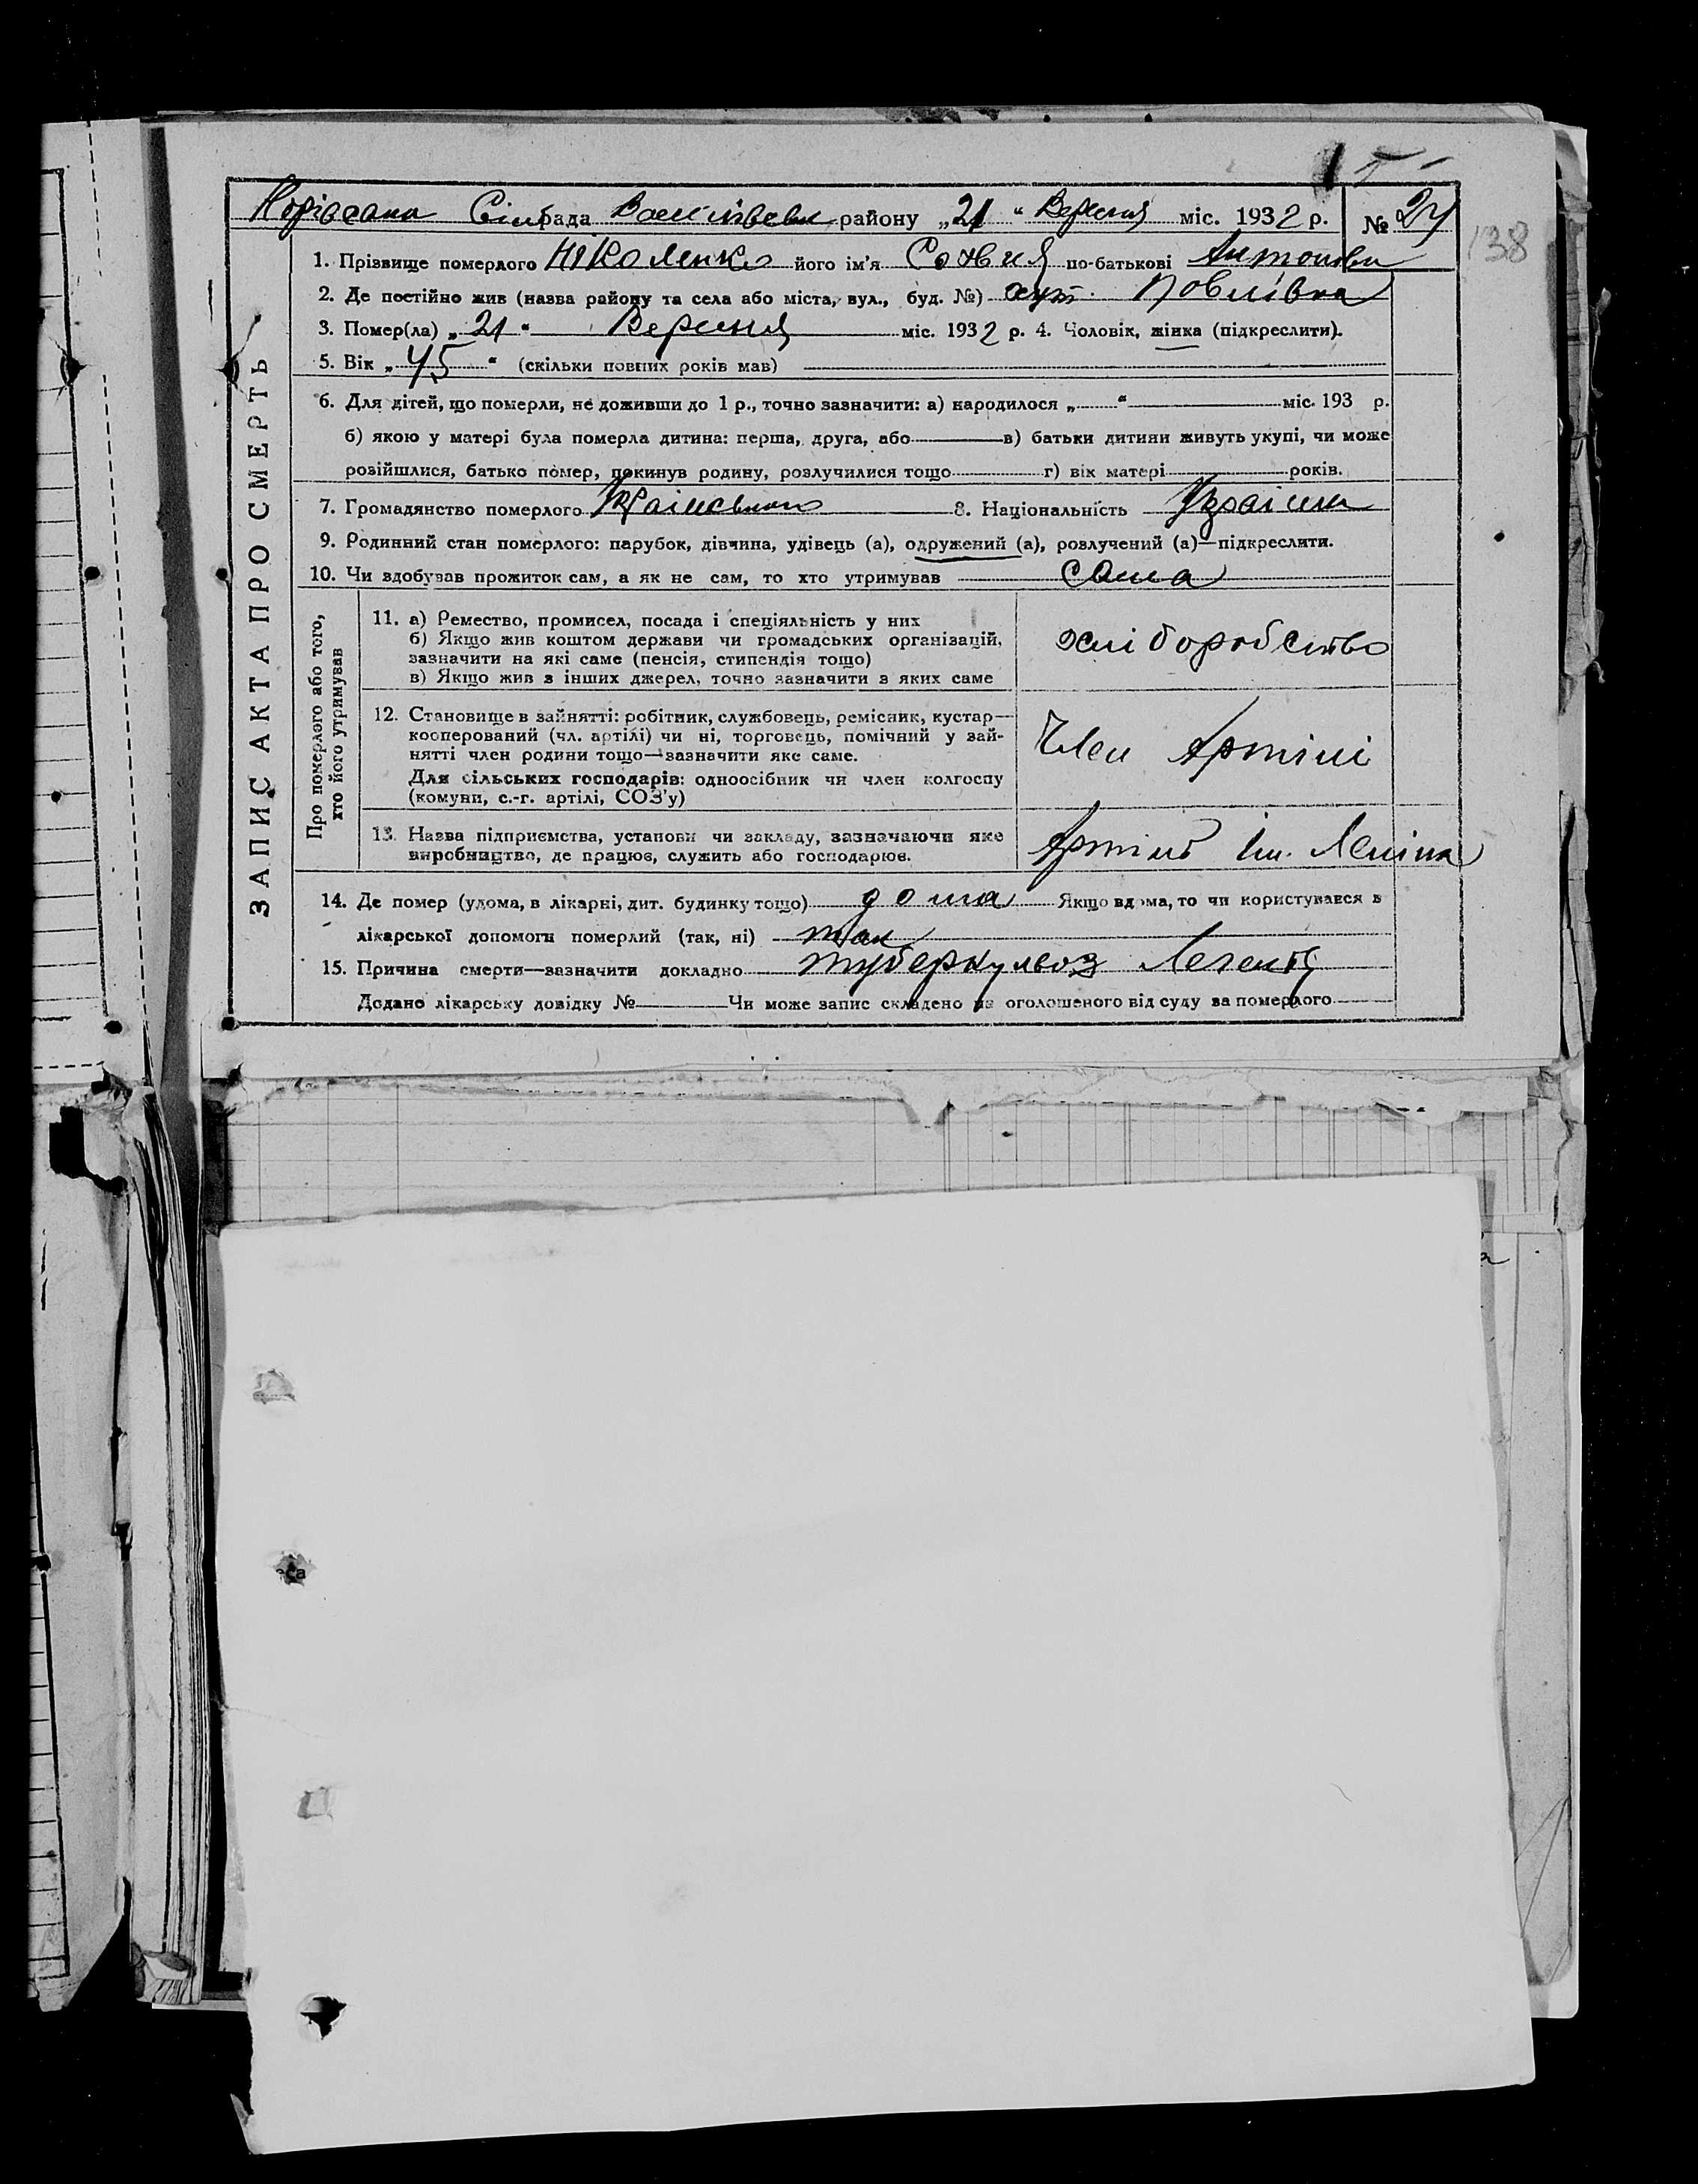 Сільрада району „21“ Вересня міс. 1932 р. №
138
ЗАПИС АКТА ПРО СМЕРТЬ
1. Прізвище померлого Ніколенко його ім'я София по-батькові Антонови
2. Де постійно жив (назва району та села або міста, вул., буд. №) хут. Повлівка
3. Помер(ла) „21“ Вересня міс. 1932 р. 4. Чоловік, жінка (підкреслити).
5. Вік „45“ (скільки повних років мав)
6. Для дітей, що померли, не доживши до 1 р., точно зазначити: а) народилося „ “ міс. 193 р.
б) якою у матері була померла дитина: перша, друга, або в) батьки дитини живуть укупі, чи може
розійшлися, батько помер, покинув родину, розлучилися тощо г) вік матері років.
7. Громадянство померлого 8. Національність Україн
9. Родинний стан померлого: парубок, дівчина, удівець (а), одружений (а), розлучений (а)—підкреслити.
10. Чи здобував прожиток сам, а як не сам, то хто утримував сама
Про померлого або того,
хто його утримував
11. а) Ремество, промисел, посада і спеціяльність у них
б) Якщо жив коштом держави чи громадських організацій,
зазначити на які саме (пенсія, стипендія тощо)
в) Якщо жив з інших джерел, точно зазначити з яких саме
хліборобство
12. Становище в зайнятті: робітник, службовець, ремісник, кустар—
кооперований (чл. артілі) чи ні, торговець, помічний у зай-
нятті член родини тощо—зазначити яке саме.
Для сільських господарів: одноосібник чи член колгоспу
(комуни, с.-г. артілі, СОЗ'у)
Член Артілі
13. Назва підприємства, установи чи закладу, зазначаючи яке
виробництво, де працює, служить або господарює.
Артіль Ім. Леніна
14. Де помер (удома, в лікарні, дит. будинку тощо) дома Якщо вдома, то чи користувався з
лікарської допомоги померлий (так, ні) так
15. Причина смерти—зазначити докладно туберкульоз Легенів
Додано лікарську довідку № Чи може запис складено на оголошеного від суду за померлого